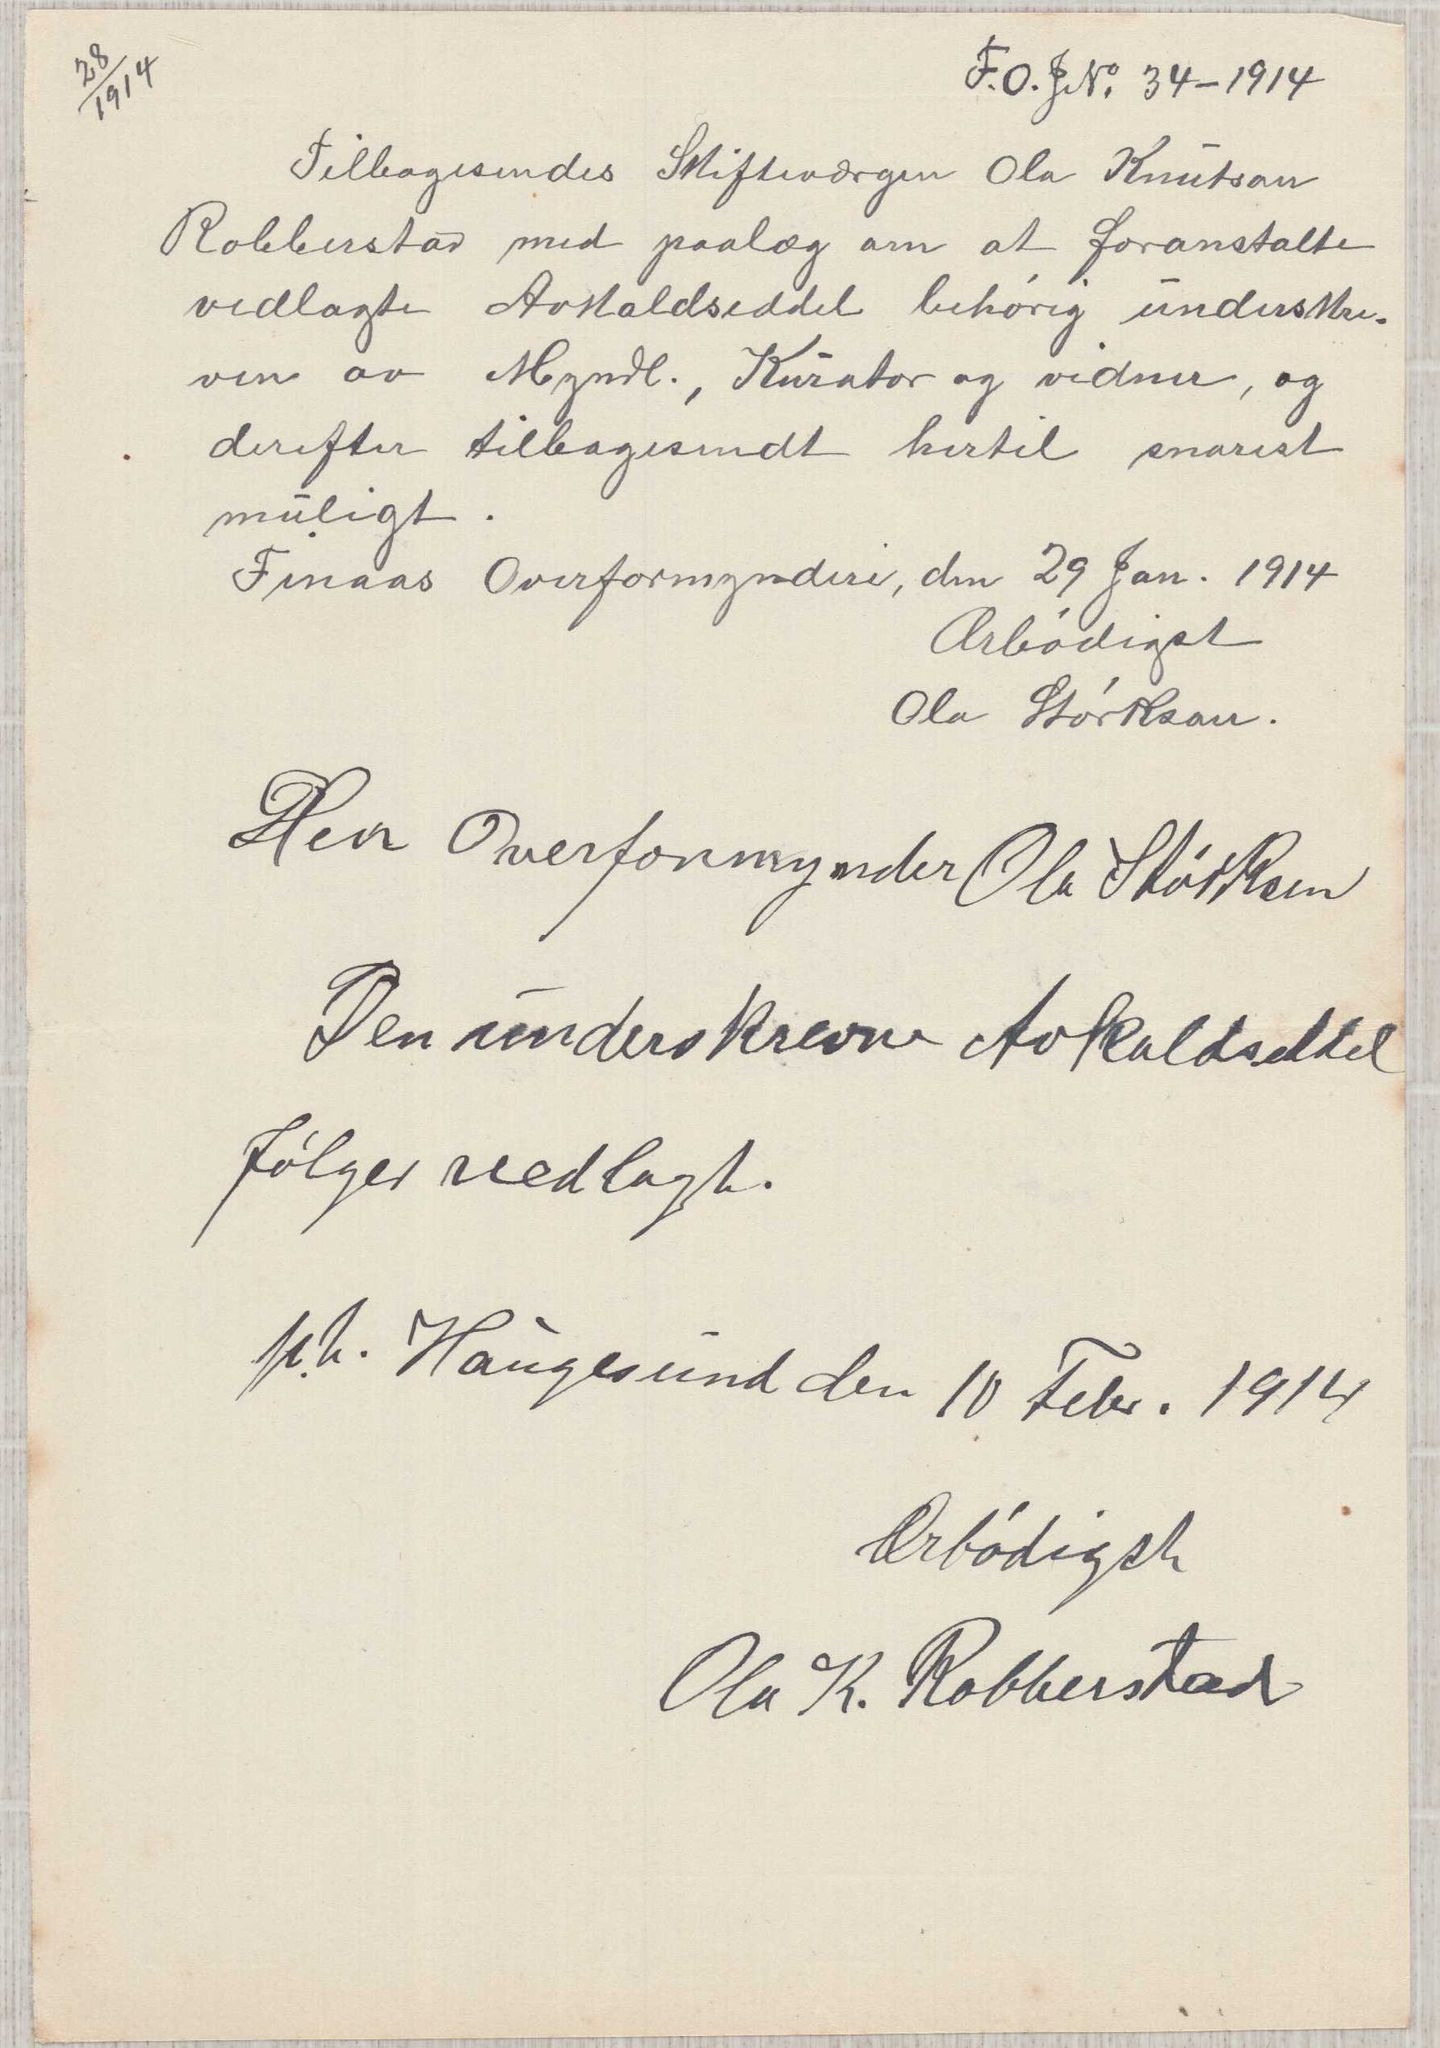 28/1914
F.O.J.No. 34-1914
Tilbagesendes Skifteværgen Ola Knutson
Robberstad med paalæg om at foranstalte
vedlagte Avkaldseddel behórig underskre-
ven av Myndl., Kurator og vidner, og
derefter tilbagesendt hertil snarest
muligt.
Finaas Overformynderi, den 29 Jan. 1914
Ærbódigst
Ola Stórkson.
Herr Overformynder Ola Stórksen
Den underskrevne Avkaldseddel
fólger vedlagt.
p.t. Haugesund den 10 Febr. 1914
Ærbódigst
Ola K. Robberstad